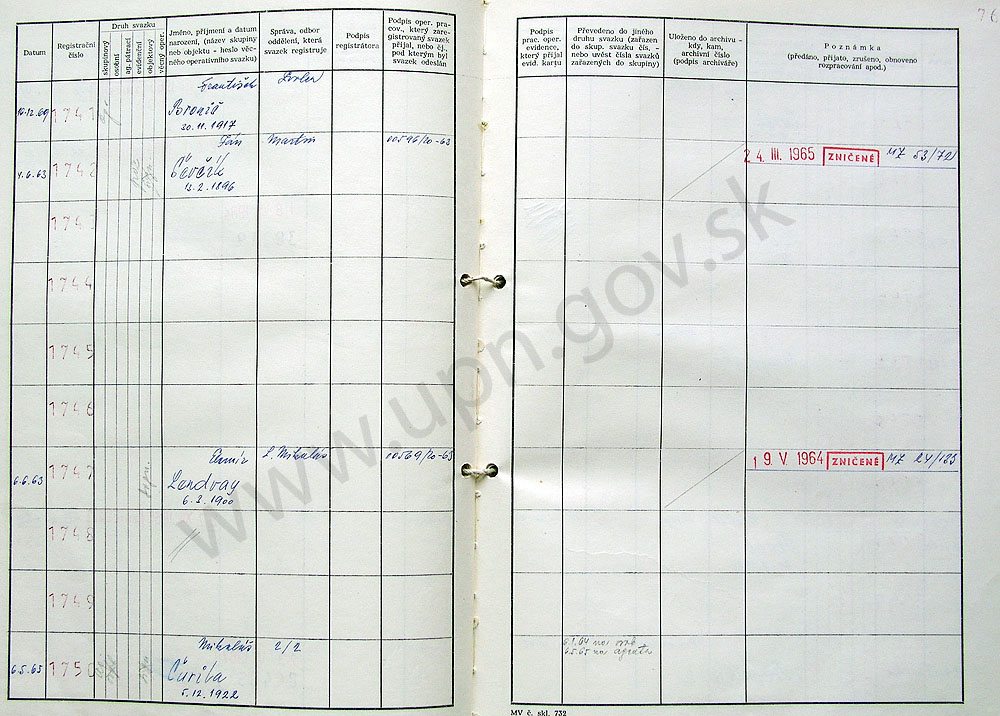 76
Datum
Registrační číslo
Druh svazku
skupinový
osobní
ag. pátrací
evidenční
objektový
věcný oper.
Jméno, příjmení a datum
narození, (název skupiny
neb objektu - heslo věc-
ného operativního svazku)
Správa, odbor
oddělení, která
svazek registruje
Podpis
registrátora
Podpis oper. pra-
cov., který zare-
gistrovaný svazek
přijal, nebo čj.,
pod kterým byl
svazek odeslán
Podpis
prac. oper.
evidence,
který přijal
evid. kartu
Převedeno do jiného
druhu svazku (zařazen
do skup. svazku čís. -
nebo uvést čísla svazků
zařazených do skupiny)
Uloženo do archivu -
kdy, kam,
archivní číslo
(podpis archiváře)
Poznámka
(předáno, přijato, zrušeno, obnoveno
rozpracování apod.)
František
10.12.60 1741
30.11.1917
Ján Martin 00596/20-63
4.6.63 1742 24. III. 1965 ZNIČENÉ MZ 53/72
13.2.1896
1743
1744
1745
1746
L. Mikuláš 00569/20-63
6.6.63 1747 Lendvay 19. V. 1964 ZNIČENÉ MZ 24/133
6.3.1900
1748
1749
Mikuláš 2/2
6.5.65 1750 Čurila
5.12.1922
6.5.65 na agenta
MV č. skl. 732
www.upn.gov.sk